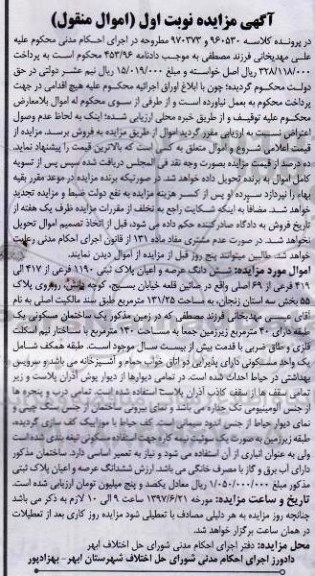 آگهی مزایده نوبت اول (اموال منقول)
در پرونده کلاسه ۹۶۰۵۳۰ و ۹۷۰۳۷۳ مطروحه در اجرای احکام مدنی محکوم علیه
علی مهدیخانی فرزند مصطفی به موجب دادنامه ۴۵۳/۹۶ محکوم به پرداخت
۳۲۸/۱۱۸/۰۰۰ ریال اصل خواسته و مبلغ ۱۵/۰۱۹/۰۰۰ ریال نیم عشر دولتی در حق
دولت محکوم گردیده؛ چون با ابلاغ اوراق اجرائیه محکوم علیه هیچ اقدامی در جهت
پرداخت محکوم به بعمل نیاورده است و از طرفی از سوی محکوم له اموال بلامعارض
محکوم علیه توقیف و از طریق خبره محلی ارزیابی شده؛ اینک به لحاظ عدم وصول
اعتراض نسبت به ارزیابی مقرر گردید اموال از طریق مزایده به فروش برسد. مزایده از
قیمت اعلامی شروع و اموال متعلق به کسی است که بالاترین قیمت را پیشنهاد نماید.
ده درصد از قیمت مزایده بصورت وجه نقد فی المجلس دریافت شده سپس پس از تسویه
کامل اموال به برنده تحویل داده خواهد شد. در صورتیکه برنده مزایده در موعد مقرر بقیه
بهاء را نپردازد سپرده او پس از کسر هزینه مزایده به نفع دولت ضبط و مزایده تجدید
خواهد شد. مضافا به اینکه شکایت راجع به تخلف از مقررات مزایده ظرف یک هفته از
تاریخ فروش به دادگاه صادرکننده حکم داده می شود، قبل از اتخاذ تصمیم اموال تحویل
نخواهد شد. در صورت عدم مشتری مفاد ماده ۱۳۱ از قانون اجرای احکام مدنی رعایت
خواهد شد. طالبین میتوانند پنج روز قبل از مزایده از اموال دیدن نمایند.
اموال مورد مزایده: شش دانگ عرصه و اعیان پلاک ثبتی ۱۱۹۰ فرعی از ۴۱۷ الی
۴۱۹ فرعی از ۶۹ اصلی واقع در صائین قلعه خیابان بسیج، کوچه روبروی پلاک
۵۵ بخش سه استان زنجان، به مساحت ۱۳۱/۲۵ مترمربع طبق سند مالکیت اصلی به نام
آقای عیسی مهدیخانی فرزند مصطفی که در زمین مذکور یک ساختمان مسکونی یک
طبقه دارای ۴۰ مترمربع زیرزمین جمعا به مساحت ۱۳۰ مترمربع با ساختار نیم اسکلت
فلزی و طاق ضربی با قدمت بیش از بیست سال موجود است. طبقه همکف شامل
یک واحد مسکونی دارای پذیرایی دو اتاق خواب حمام و آشپزخانه می باشد و سرویس
بهداشتی در حیاط احداث شده است. در تمامی دیوارها از دیوار پوش آذران پلاست و زیر
تمامی سقف ها از سقف کاذب آذران پلاست استفاده شده است. تمامی درب و پنجره ها
از جنس آلومینیومی تک جداره می باشد و نمای بیرونی ساختمان از جنس سنگ چینی و
نمای دیوار حیاط از جنس اندود سیمانی است. کف حیاط با موزاییک کف سازی گردیده.
طبقه زیرزمین به صورت یک سوئیت نیمه کاره جهت استفاده مسکونی تیغه بندی شده است
ولی به عنوان انباری از آن استفاده می شود و نیاز به تعمیر اساسی دارد. ساختمان مذکور
دارای آب برق و گاز با مصرف خانگی می باشد. ارزش ششدانگ عرصه و اعیان پلاک ثبتی
مذکور مبلغ ۱/۰۵۰/۰۰۰/۰۰۰ ریال معادل یکصد و پنج میلیون تومان ارزیابی شده است.
تاریخ و ساعت مزایده: مورخه ۱۳۹۷/۶/۲۱ ساعت ۹ الی ۱۰ لازم به ذکر می باشد
چنانچه روز مزایده به هر دلیلی مصادف با تعطیلی شود مزایده روز کاری بعد از تعطیلات
در همان ساعت برگزار خواهد شد.
محل مزایده: دفتر اجرای احکام مدنی شورای حل اختلاف ابهر
دادورز اجرای احکام مدنی شورای حل اختلاف شهرستان ابهر- بهزادپور